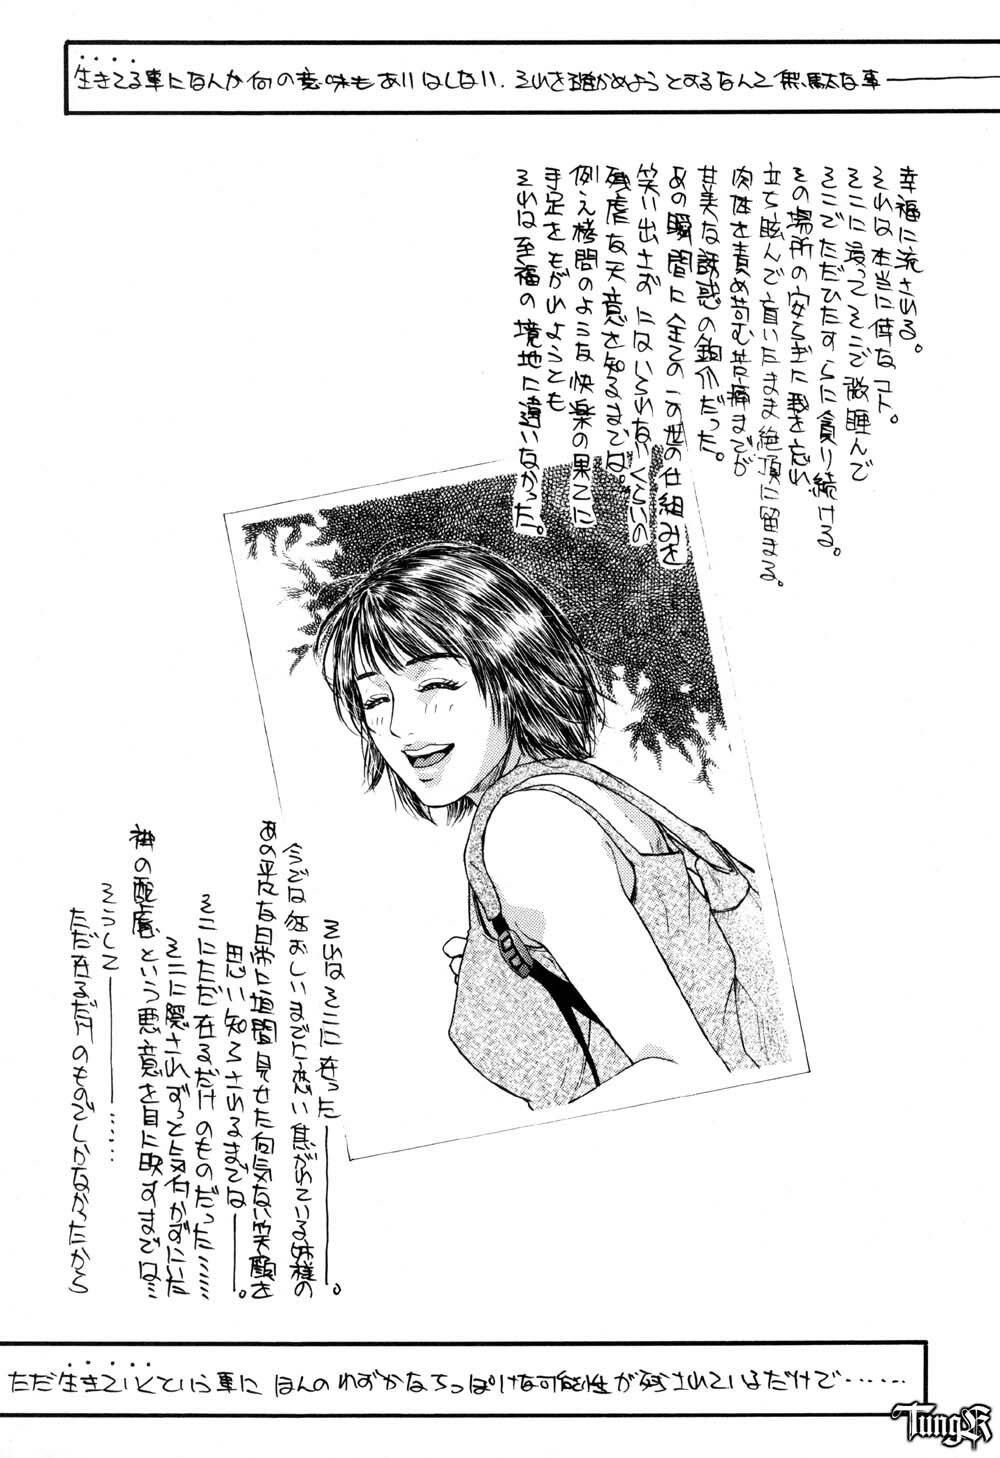 生きてる事になんか何の意味もありはしない．それを確かめようとするなんて無駄な事────
幸福に流される。
それは本当に倖なコト。
そこに浸ってそこで微睡んで
そこでただひたすらに貪り続ける。
その場所の安らぎに我を忘れ
立ち眩んで盲いたまま絶頂に留まる。
肉体を責め苛む苦痛までが
甘美な誘惑の鉤爪だった。
あの瞬間に全てのこの世の仕組みを
笑い出さずにはいられないくらいの
残虐な天意を知るまでは。
例え拷問のような快楽の果てに
手足をもがれようとも
それは至福の境地に違いなかった。
それはそこに在った────。
今では狂おしいまでに恋い焦がれている姉様の
あの平凡な日常に垣間見せた何気ない笑顔を
思い知らされるまでは───。
そこにただ在るだけのものだった……
そこに隠されずっと気付かずにいた
神の配慮という悪意を目に映すまでは…
そうして────……
ただ在るだけのものでしかなかったから
ただ生きていくという事に ほんのわずかなちっぽけな可能性が残されているだけで……
TungK